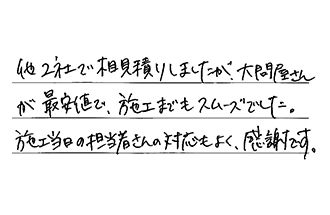 他2社で相見積りしましたが、大問屋さん
が最安値で、施工までもスムーズでした。
施工当日の担当者さんの対応もよく、感謝です。